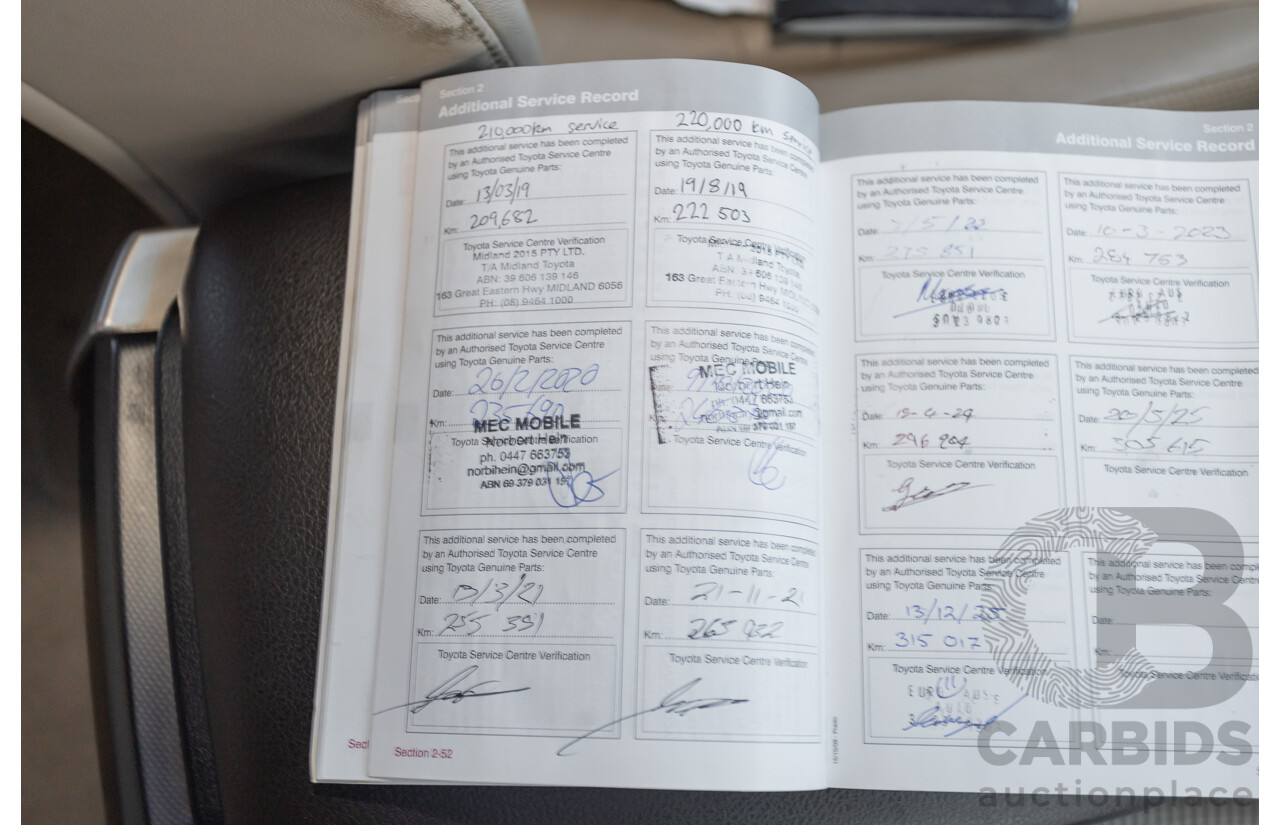 Section 2
Additional Service Record
210,000km service
This additional service has been completed
by an Authorised Toyota Service Centre
using Toyota Genuine Parts:
Date: 13/03/19
Km: 209,682
Toyota Service Centre Verification
Midland 2015 PTY LTD.
T/A Midland Toyota
ABN: 39 606 139 146
163 Great Eastern Hwy MIDLAND 6056
PH: (08) 9464 1000
220,000 km service
This additional service has been completed
by an Authorised Toyota Service Centre
using Toyota Genuine Parts:
Date: 19/8/19
Km: 222 503
Toyota Service Centre Verification
T/A Midland Toyota
163 Great Eastern Hwy MIDLAND
PH: (08) 9464 1000
This additional service has been completed
by an Authorised Toyota Service Centre
using Toyota Genuine Parts:
Date: 26/2/2020
Km:
MEC MOBILE
Toyota Service Centre Verification
Norbert Hein
ph. 0447 663753
norbihein@gmail.com
ABN 69 379 031 197
This additional service has been completed
by an Authorised Toyota Service Centre
using Toyota Genuine Parts:
MEC MOBILE
Norbert Hein
ph. 0447 663753
@gmail.com
Toyota Service Centre Verification
This additional service has been completed
by an Authorised Toyota Service Centre
using Toyota Genuine Parts:
Date: 13/3/21
Km: 255 391
Toyota Service Centre Verification
This additional service has been completed
by an Authorised Toyota Service Centre
using Toyota Genuine Parts:
Date: 21-11-21
Km: 265 932
Toyota Service Centre Verification
Section 2-52
Section 2
Additional Service Record
This additional service has been completed
by an Authorised Toyota Service Centre
using Toyota Genuine Parts:
Date: /5/22
Km: 275 851
Toyota Service Centre Verification
This additional service has been completed
by an Authorised Toyota Service Centre
using Toyota Genuine Parts:
Date: 10-3-2023
Km: 284 753
Toyota Service Centre Verification
EURO AUS
This additional service has been completed
by an Authorised Toyota Service Centre
using Toyota Genuine Parts:
Date: -4-24
Km: 296 904
Toyota Service Centre Verification
This additional service has been completed
by an Authorised Toyota Service Centre
using Toyota Genuine Parts:
Date: 20/5/25
Km: 305 615
Toyota Service Centre Verification
This additional service has been completed
by an Authorised Toyota Service Centre
using Toyota Genuine Parts:
Date: 13/12/25
Km: 315 017
Toyota Service Centre Verification
This additional service has been completed
by an Authorised Toyota Service Centre
using Toyota Genuine Parts:
Date:
Km:
Toyota Service Centre Verification
CARBIDS
auctionplace